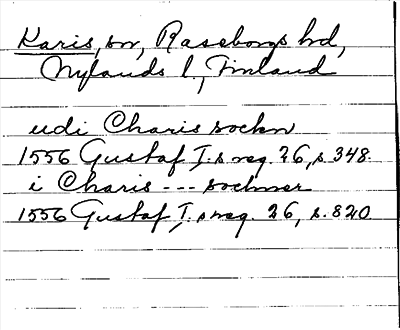 Karis, sn, Raseborgs hd,
Nylands l, Finland
udi Charis sockn
1556 Gustaf I.s reg. 26, s. 348.
i Charis --- sochner
1556 Gustaf I.s reg. 26, s. 820